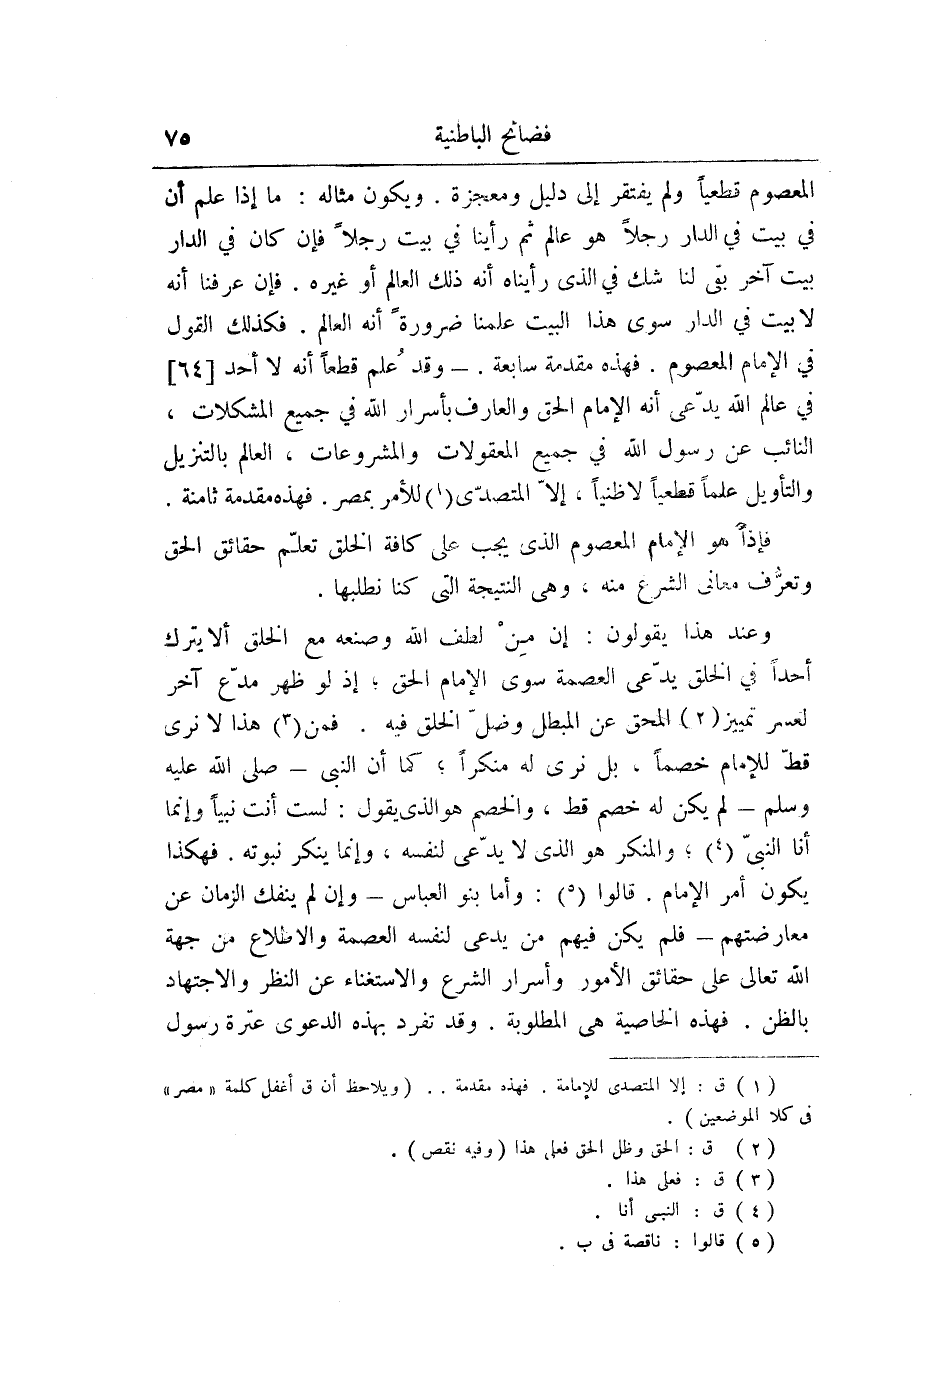 فضائح الباطنية ٧٥
المعصوم قطعياً ولم يفتقر إلى دليل ومعجزة . ويكون مثاله : ما إذا علم أن
في بيت في الدار رجلاً هو عالم ثم رأينا في بيت رجلاً فإن كان في الدار
بيت آخر بقى لنا شك في الذى رأيناه أنه ذلك العالم أو غيره . فإن عرفنا أنه
لا بيت في الدار سوى هذا البيت علمنا ضرورةً أنه العالم . فكذلك القول
في الإمام المعصوم . فهذه مقدمة سابعة . — وقد عُلم قطعاً أنه لا أحد [٦٤]
في عالم الله يدّعى أنه الإمام الحق والعارف بأسرار الله في جميع المشكلات ،
النائب عن رسول الله في جميع المعقولات والمشروعات ، العالم بالتنزيل
والتأويل علماً قطعياً لا ظنياً ، إلاّ المتصدّى(١) للأمر بمصر . فهذه مقدمة ثامنة .
فإذاً هو الإمام المعصوم الذى يجب على كافة الخلق تعلّم حقائق الحق
وتعرُّف معانى الشرع منه ، وهى النتيجة التى كنا نطلبها .
وعند هذا يقولون : إن مِنْ لطف الله وصنعه مع الخلق ألا يترك
أحداً في الخلق يدّعى العصمة سوى الإمام الحق ؛ إذ لو ظهر مدّع آخر
لعسر تمييز(٢) المحق عن المبطل وضلّ الخلق فيه . فمن(٣) هذا لا نرى
قطّ للإمام خصماً ، بل نرى له منكراً ؛ كما أن النبى — صلى الله عليه
وسلم — لم يكن له خصم قط ، والخصم هو الذى يقول : لست أنت نبياً وإنما
أنا النبىّ (٤) ؛ والمنكر هو الذى لا يدّعى لنفسه ، وإنما ينكر نبوته . فهكذا
يكون أمر الإمام . قالوا (٥) : وأما بنو العباس — وإن لم ينفك الزمان عن
معارضتهم — فلم يكن فيهم من يدعى لنفسه العصمة والاطلاع من جهة
الله تعالى على حقائق الأمور وأسرار الشرع والاستغناء عن النظر والاجتهاد
بالظن . فهذه الخاصية هى المطلوبة . وقد تفرد بهذه الدعوى عترة رسول
(١) ق : إلا المتصدى للإمامة . فهذه مقدمة . . (ويلاحظ أن ق أغفل كلمة « مصر »
فى كلا الموضعين) .
(٢) ق : الحق وظل الحق فعلى هذا (وفيه نقص) .
(٣) ق : فعلى هذا .
(٤) ق : النبى أنا .
(٥) قالوا : ناقصة فى ب .